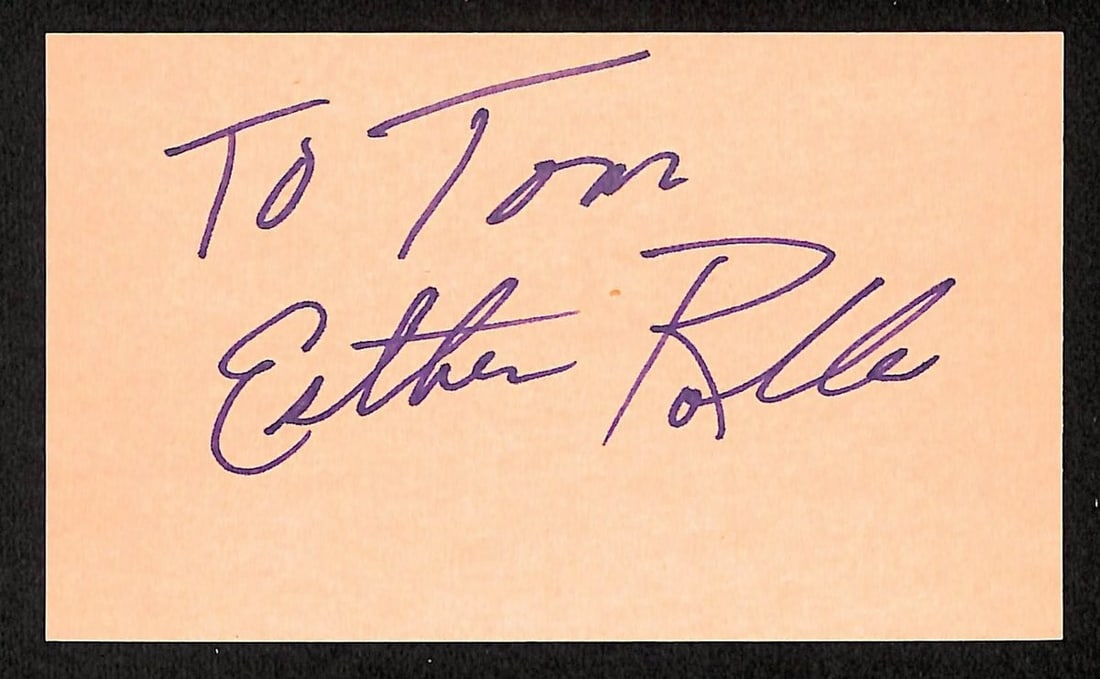 To Tom
Esther Rolle